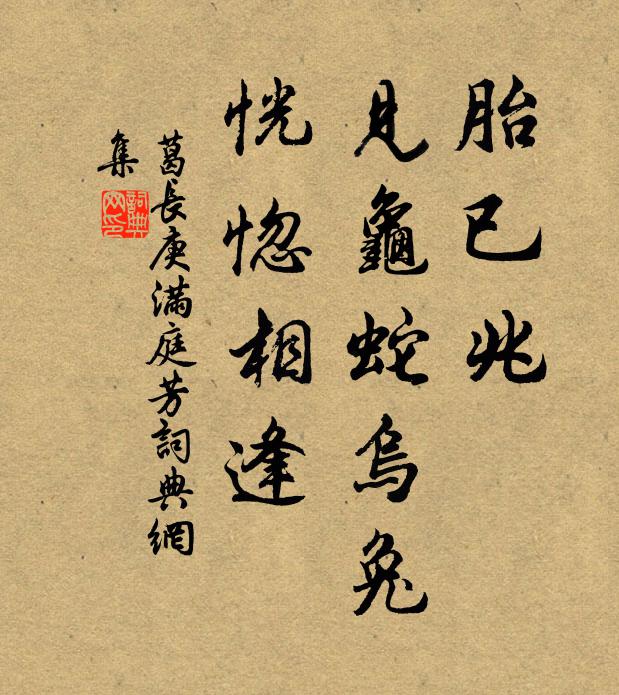 胎已兆
見龜蛇烏兔
恍惚相逢
葛長庚滿庭芳詞典網
集
詞典
网印